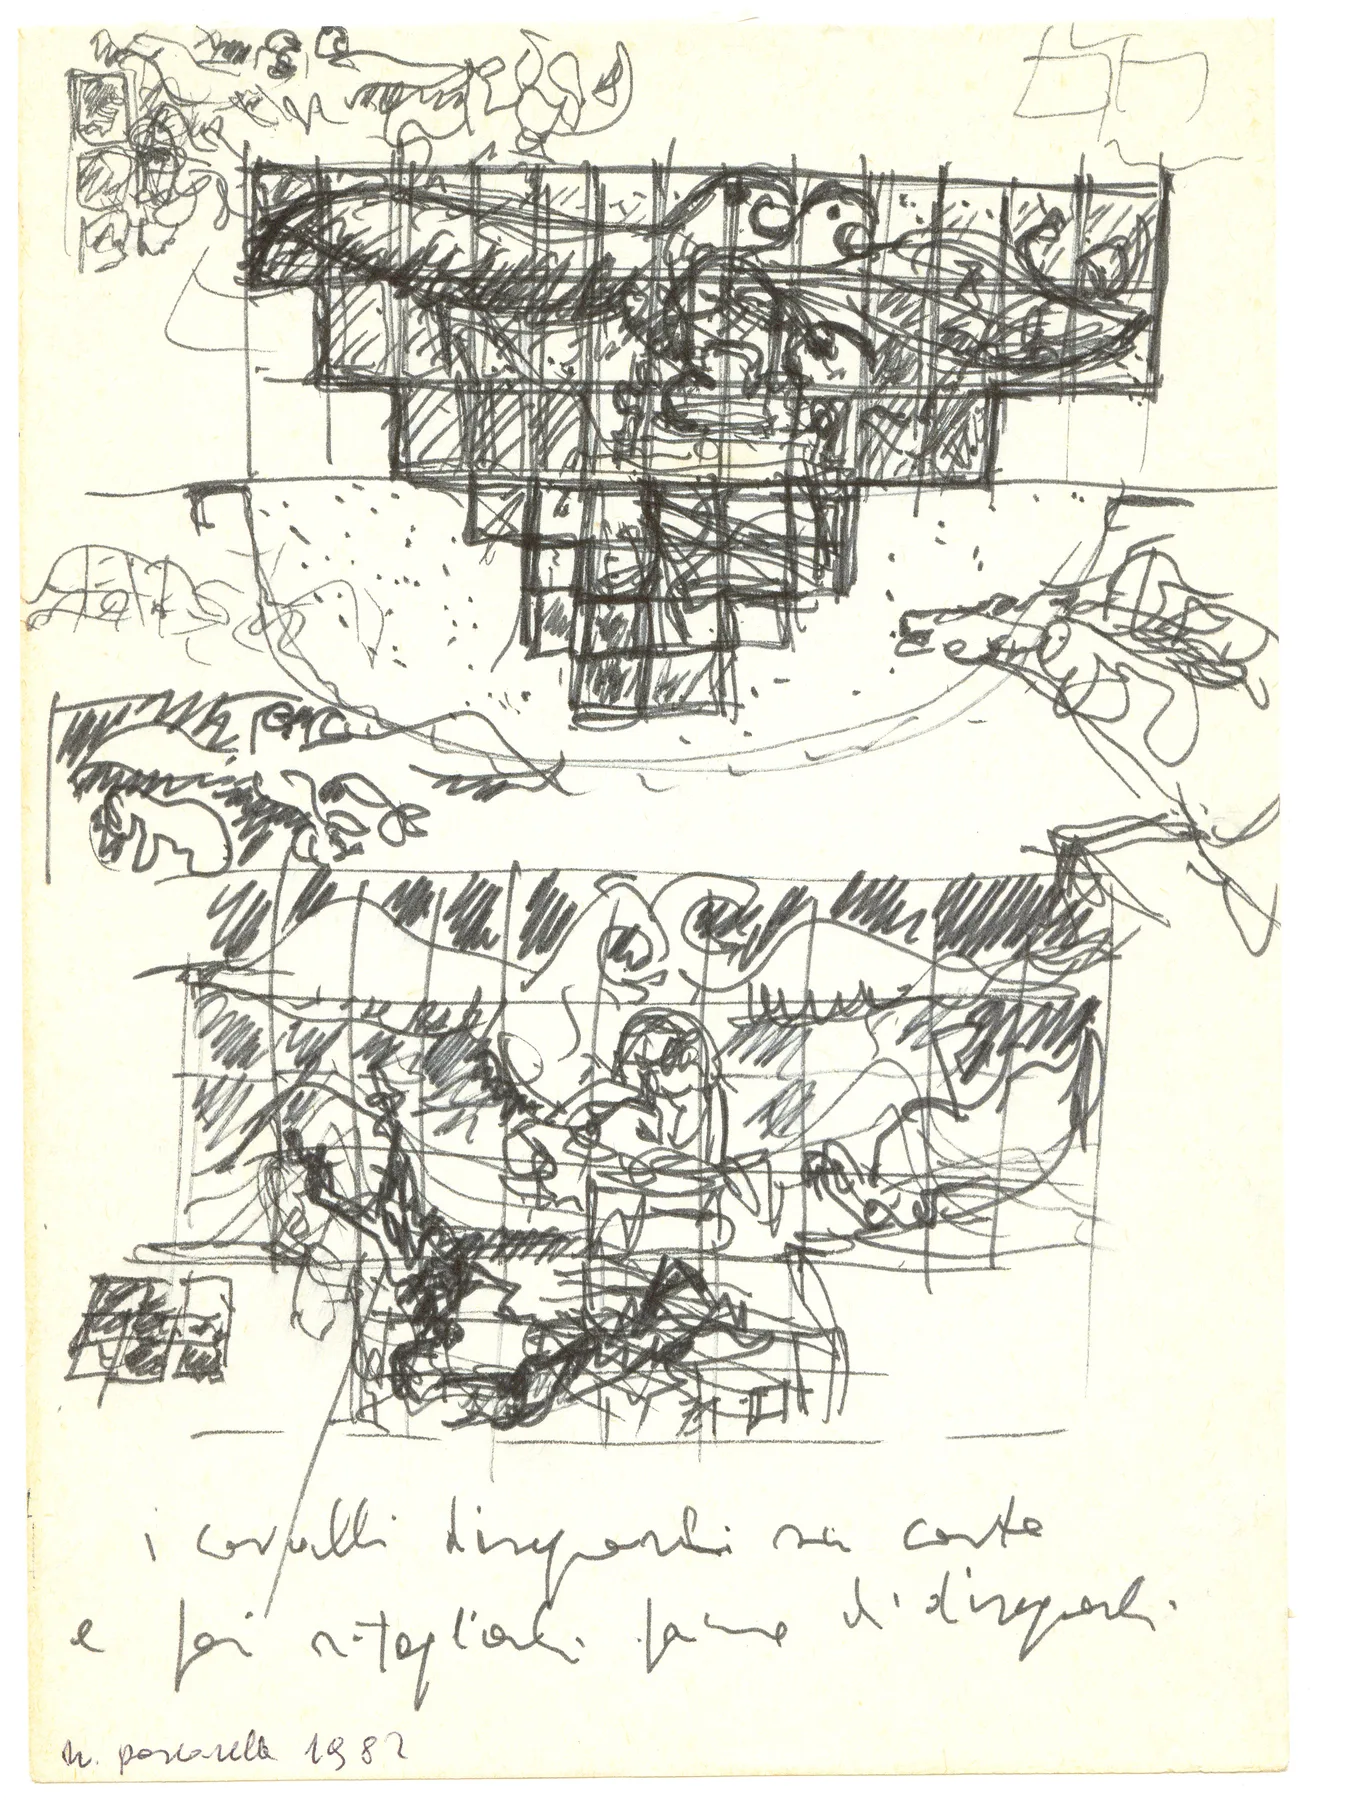 i cavalli disegnarli su carta
e poi ritagliarli prima di disegnarli
n. pascarella 1982